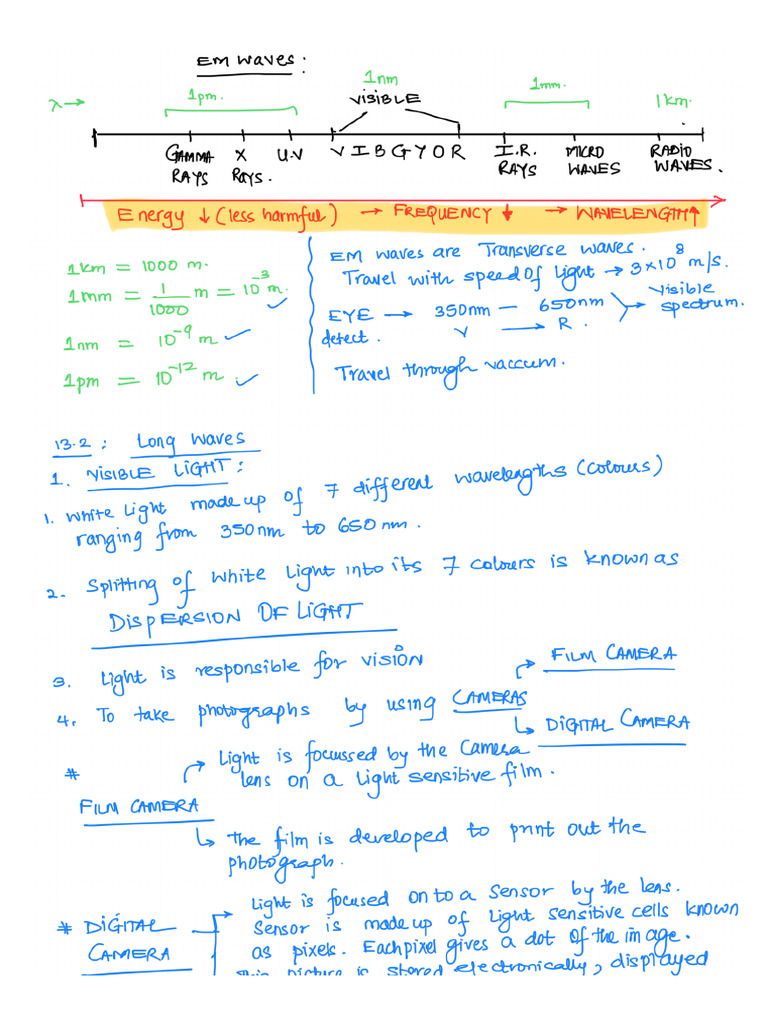 EM waves:
λ→ 1pm. 1nm 1mm. 1km.
VISIBLE
GAMMA RAYS X RAYS. U.V V I B G Y O R I.R. RAYS MICRO WAVES RADIO WAVES.
Energy ↓ (less harmful) → FREQUENCY ↓ → WAVELENGTH↑
1km = 1000 m.
1mm = 1/1000 m = 10⁻³ m. ✓
1nm = 10⁻⁹ m ✓
1pm = 10⁻¹² m. ✓
EM waves are Transverse waves.
Travel with speed of Light → 3×10⁸ m/s.
EYE → 350nm — 650nm > visible spectrum.
detect. V → R.
Travel through vaccum.
13.2: Long Waves
1. VISIBLE LIGHT:
1. White Light made up of 7 different wavelengths (colours)
ranging from 350nm to 650nm.
2. Splitting of White Light into its 7 colours is known as
DISPERSION OF LIGHT
3. Light is responsible for vision
4. To take photographs by using CAMERAS
→ FILM CAMERA
↳ DIGITAL CAMERA
* FILM CAMERA
→ Light is focussed by the Camera
lens on a Light sensitive film.
↳ The film is developed to print out the
photograph.
* DIGITAL CAMERA
→ Light is focused onto a sensor by the lens.
Sensor is made up of Light sensitive cells known
as pixels. Each pixel gives a dot of the image.
picture is stored electronically, displayed